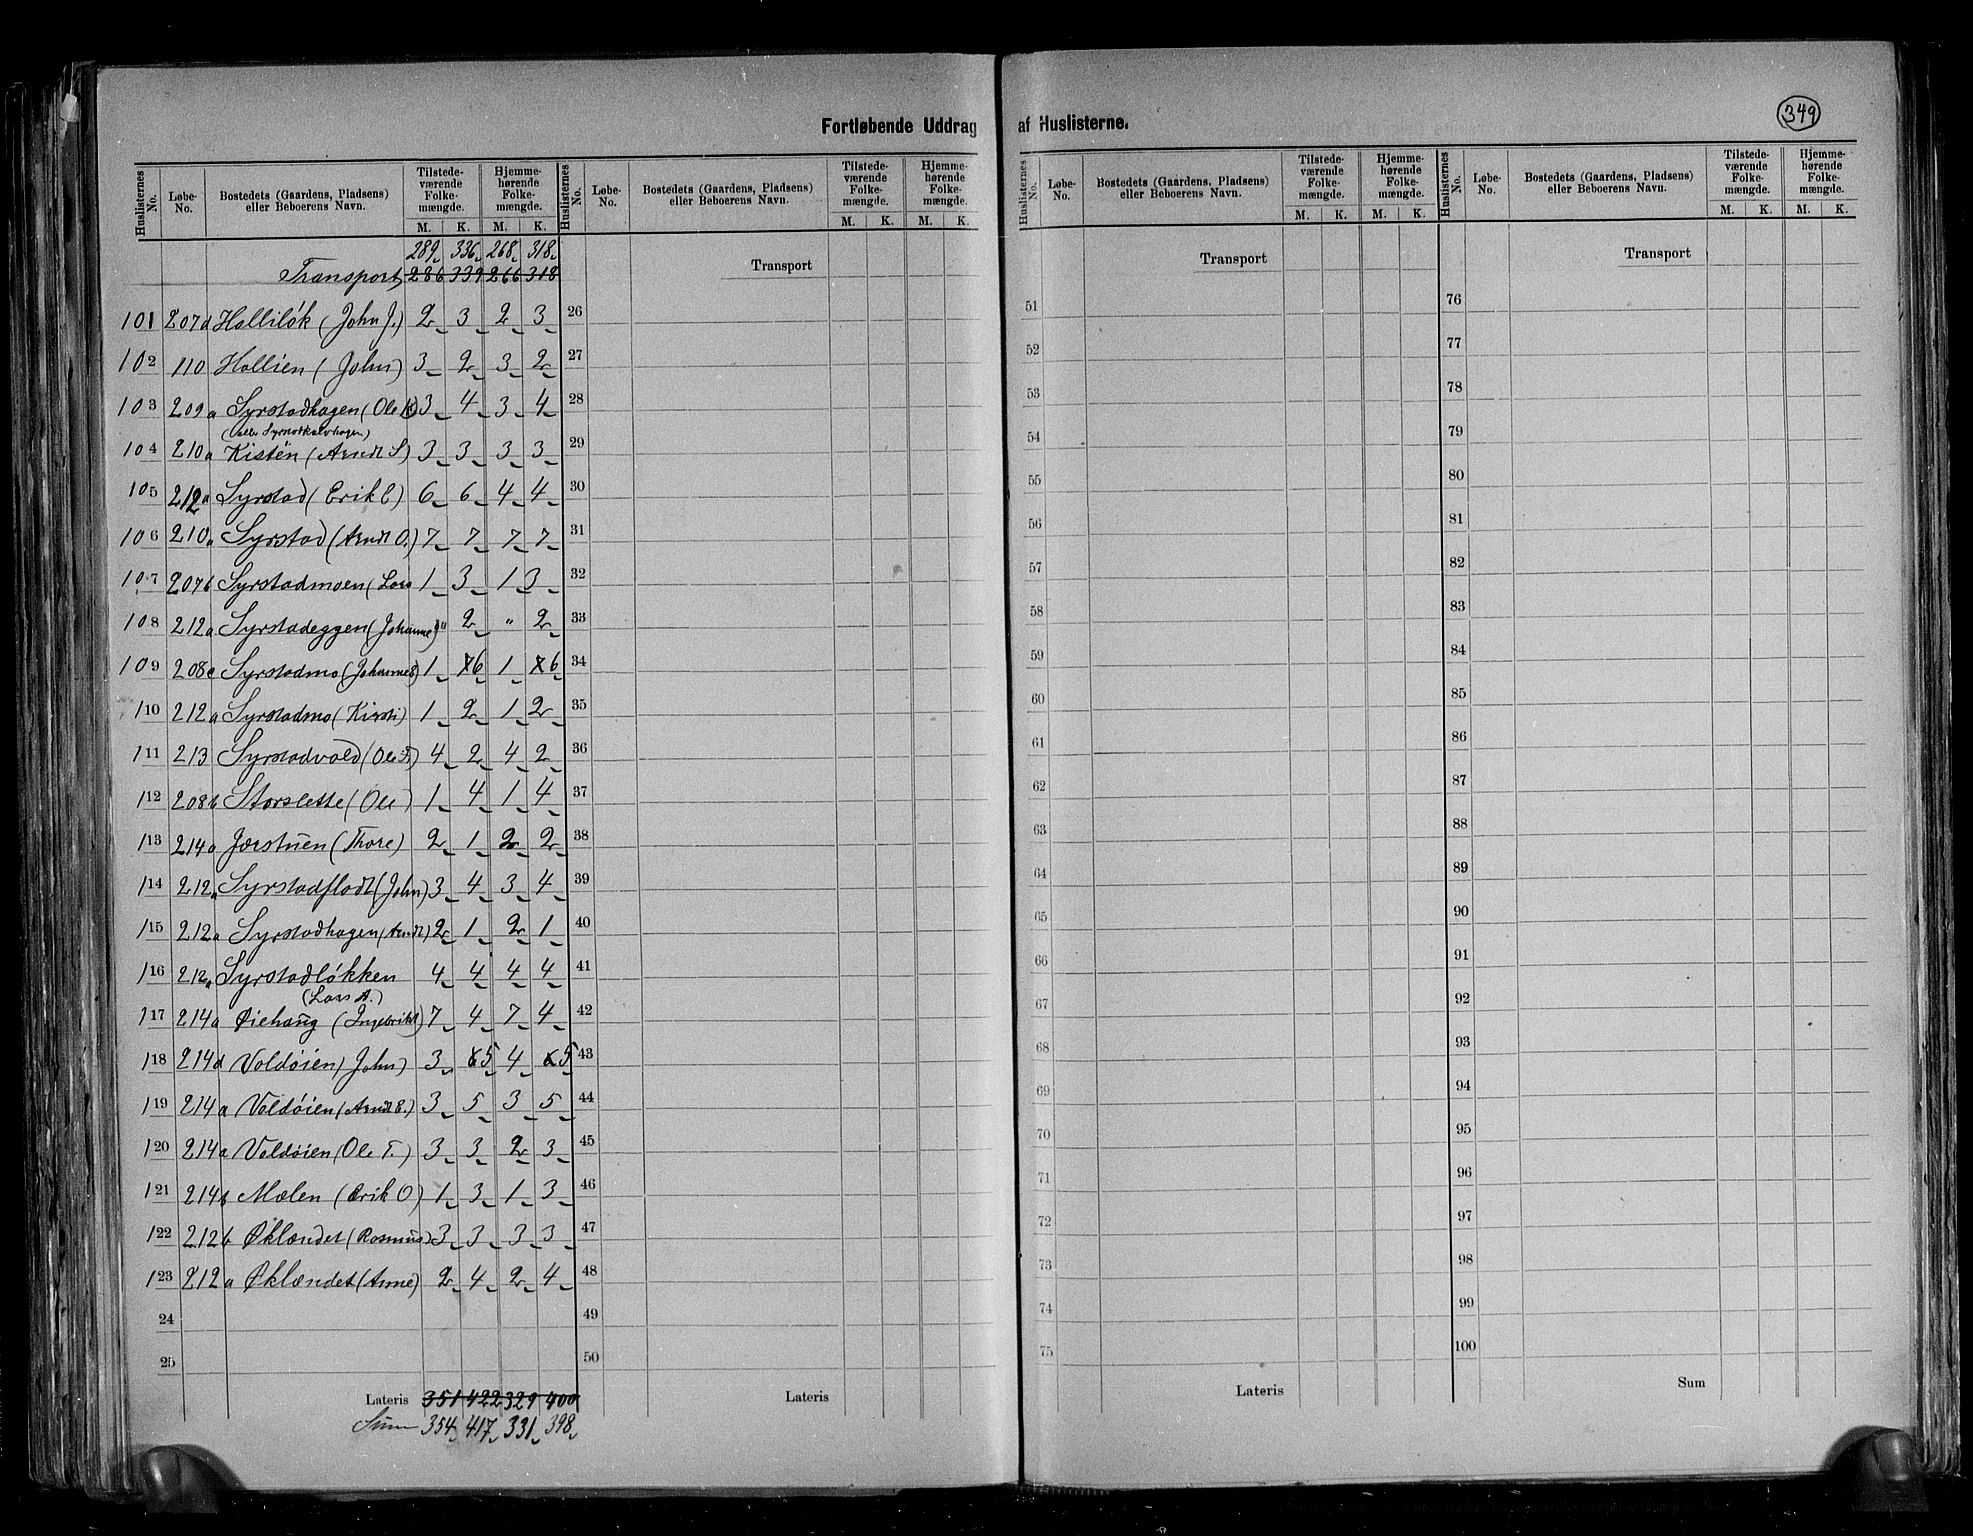 349
Fortløbende Uddrag af Huslisterne.
Huslisternes No. Løbe-No. Bostedets (Gaardens, Pladsens) eller Beboerens Navn. Tilstedeværende Folkemængde. M. K. Hjemmehørende Folkemængde. M. K.
Huslisternes No. Løbe-No. Bostedets (Gaardens, Pladsens) eller Beboerens Navn. Tilstedeværende Folkemængde. M. K. Hjemmehørende Folkemængde. M. K.
Huslisternes No. Løbe-No. Bostedets (Gaardens, Pladsens) eller Beboerens Navn. Tilstedeværende Folkemængde. M. K. Hjemmehørende Folkemængde. M. K.
Huslisternes No. Løbe-No. Bostedets (Gaardens, Pladsens) eller Beboerens Navn. Tilstedeværende Folkemængde. M. K. Hjemmehørende Folkemængde. M. K.
289 336 268 318
Transport 286 339 266 318
101 207d Halliløk (John J.) 2 3 2 3
102 110 Hallien (John) 3 2 3 2
103 209a Syrstadhagen (Ole K) 3 4 3 4
104 210a Kistén (Arndt S) 3 3 3 3
105 212a Syrstad (Erik E) 6 6 4 4
106 210a Syrstad (Arndt O.) 7 7 7 7
107 207b Syrstadmoen (Lars 1 3 1 3
108 212a Syrstadeggen (Johanne) " 2 " 2
109 208c Syrstadmo (Johannes) 1 7 6 1 7 6
110 212a Syrstadmo (Kirsti) 1 2 1 2
111 213 Syrstadvold (Ole F.) 4 2 4 2
112 208b Storslette (Ole) 1 4 1 4
113 214a Jørstuen (Thore) 2 1 2 2
114 212a Syrstadflodt (John) 3 4 3 4
115 212a Syrstadhagen (Arndt) 2 1 2 1
116 212a Syrstadløkken 4 4 4 4
(Lars A.)
117 214a Øiehaug (Ingebrikt) 7 4 7 4
118 214d Voldøien (John) 3 6 5 4 6 5
119 214a Voldøien (Arndt E.) 3 5 3 5
120 214a Voldøien (Ole T.) 3 3 2 3
121 214b Mælen (Erik O) 1 3 1 3
122 212b Øklændet (Rasmus) 3 3 3 3
123 212a Øklændet (Anne) 2 4 2 4
24
25
Lateris 351 422 329 400
Sum 354 417 331 398
Transport
26
27
28
29
30
31
32
33
34
35
36
37
38
39
40
41
42
43
44
45
46
47
48
49
50
Lateris
Transport
51
52
53
54
55
56
57
58
59
60
61
62
63
64
65
66
67
68
69
70
71
72
73
74
75
Lateris
Transport
76
77
78
79
80
81
82
83
84
85
86
87
88
89
90
91
92
93
94
95
96
97
98
99
100
Sum